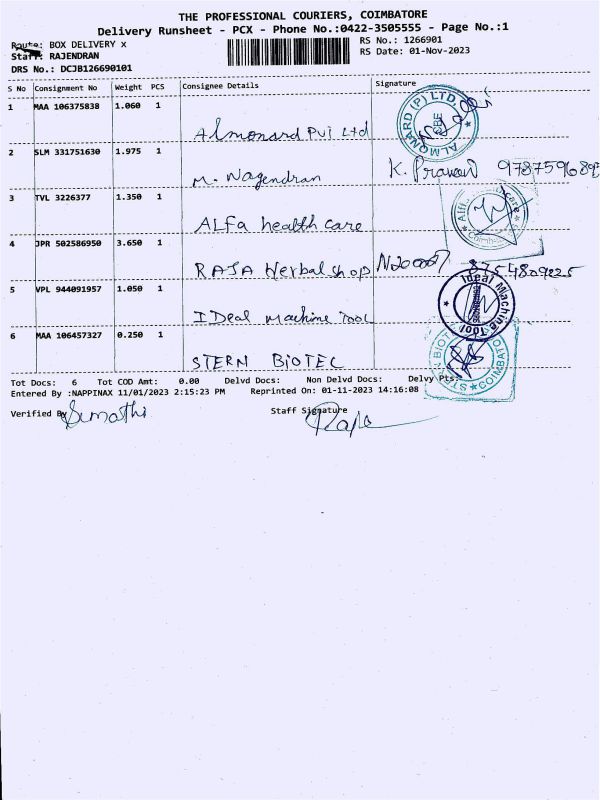 THE PROFESSIONAL COURIERS, COIMBATORE
Delivery Runsheet - PCX - Phone No.:0422-3505555 - Page No.:1
Route: BOX DELIVERY x
RS No.: 1266901
Staff: RAJENDRAN
RS Date: 01-Nov-2023
DRS No.: DCJB126690101
S No Consignment No Weight PCS Consignee Details Signature
1 MAA 106375838 1.060 1
Almonard Pvt Ltd
ALMONARD (P) LTD.
2 SLM 331751630 1.975 1
M. Nagendran K. Pravan
3 TVL 3226377 1.350 1
ALFa health care
4 JPR 502586950 3.650 1
RAJA Herbal shop 8754809225
5 VPL 944091957 1.050 1
IDeal Machine Tool
Ideal Machine Tool
6 MAA 106457327 0.250 1
STERN BIOTEC
STERN BIOTEC COIMBATORE
Tot Docs: 6 Tot COD Amt: 0.00 Delvd Docs: Non Delvd Docs: Delvy Pts:
Entered By :NAPPINAX 11/01/2023 2:15:23 PM Reprinted On: 01-11-2023 14:16:08
Verified By Sumathi Staff Signature Raja